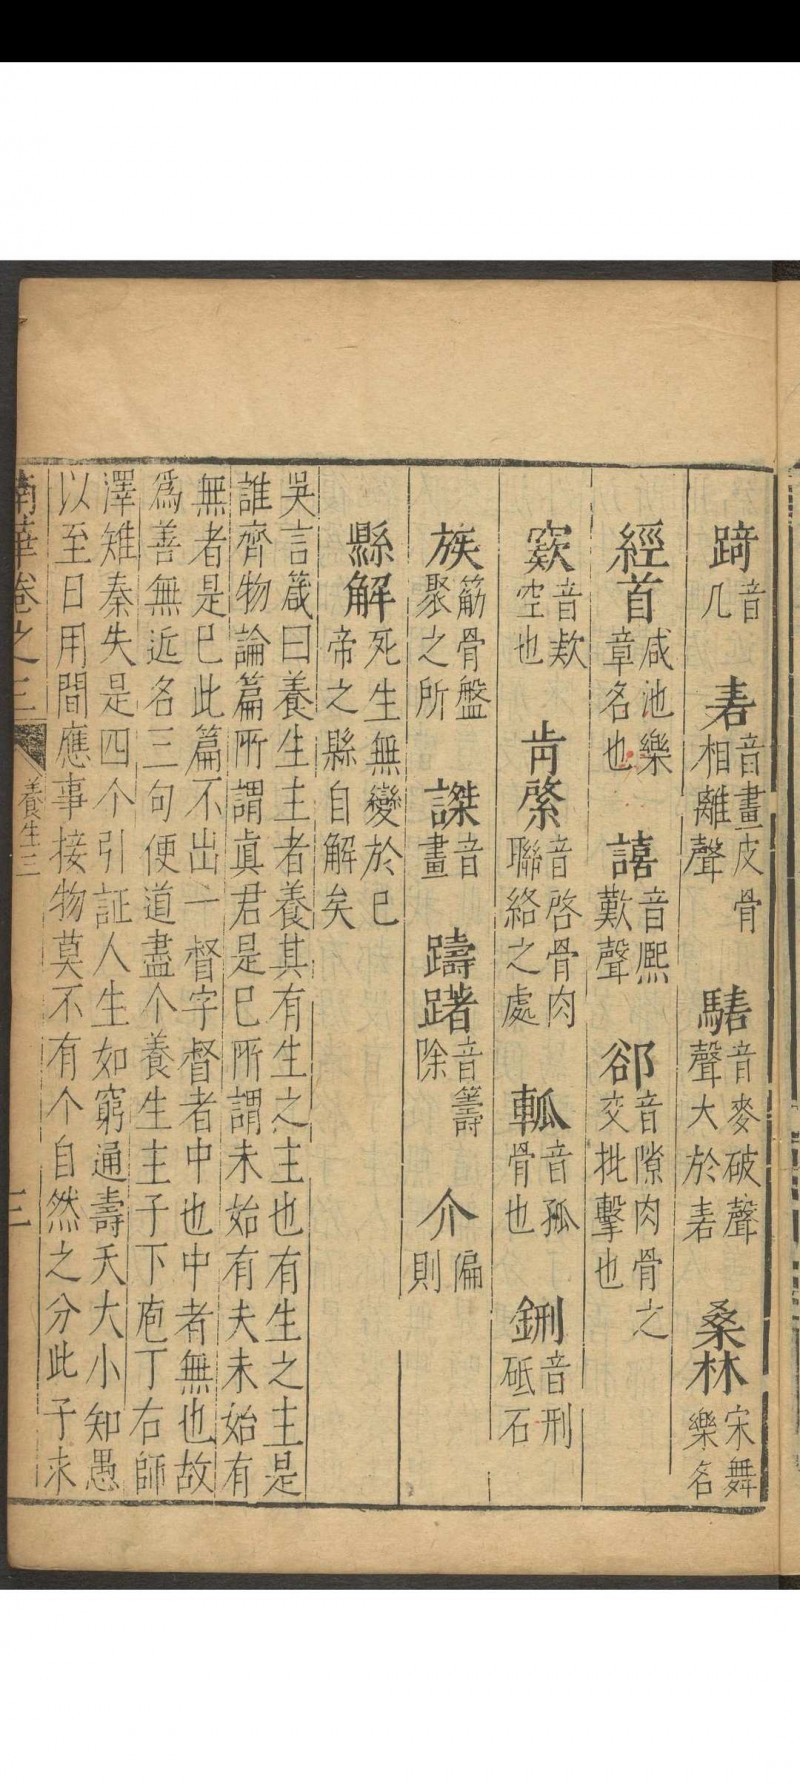 踦音几 砉音畫皮骨相離聲 騞音麥破聲聲大於砉 桑林宋舞樂名
經首咸池樂章名也 譆音熈歎聲 郤音隙肉骨之交批擊也
窾音欵空也 肯綮音啓骨肉聯絡之處 軱音孤骨也 鉶音刑砥石
族筋骨盤聚之所 謋音畫 躊躇音籌除 介偏則
縣解死生無變於巳帝之縣自解矣
吳言箴曰養生主者養其有生之主也有生之主是
誰齊物論篇所謂眞君是巳所謂未始有夫未始有
無者是巳此篇不出一督字督者中也中者無也故
爲善無近名三句便道盡个養生主子下庖丁右師
澤雉秦失是四个引証人生如窮通壽夭大小知愚
以至日用間應事接物莫不有个自然之分此子來
南華卷之三 養生三 三